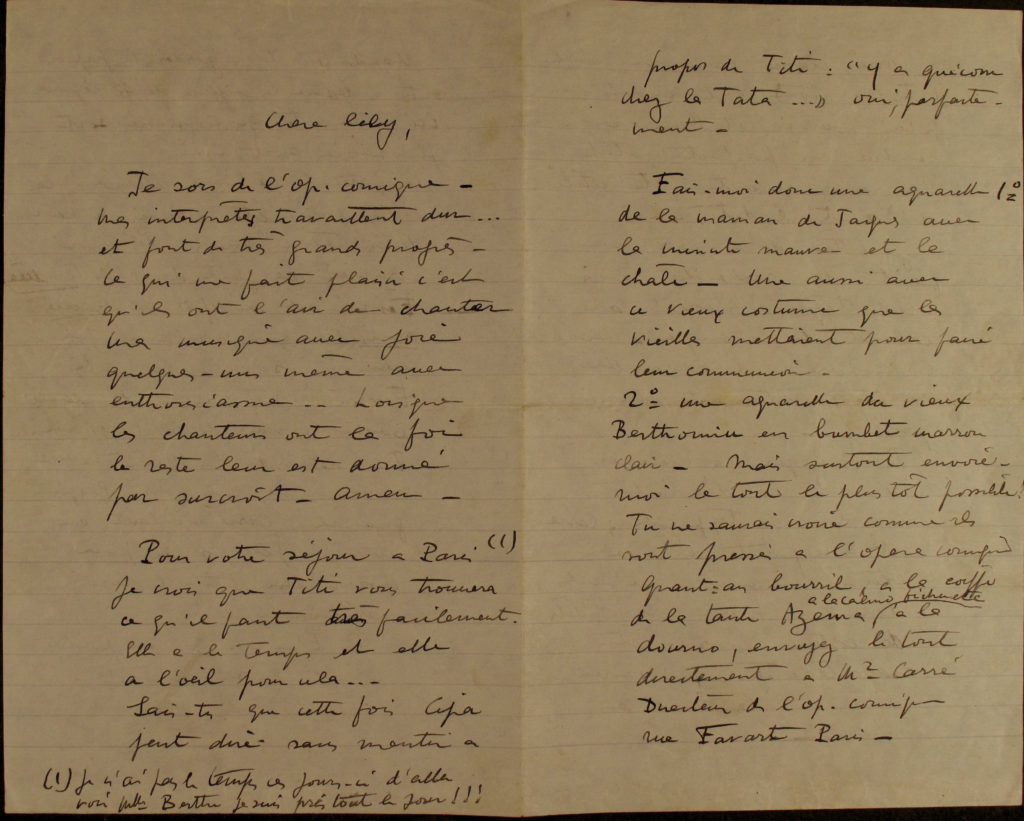 Chère Lily,
Je sors de l'op. comique –
Mes interprètes travaillent dur...
et font de très grands progrès –
Ce qui me fait plaisir c'est
qu'ils ont l'air de chanter
ma musique avec joie
quelques-uns même avec
enthousiasme... Lorsque
les chanteurs ont la foi
le reste leur est donné
par surcroît – amen –
Pour votre séjour a Paris (1)
je crois que Titi vous trouvera
ce qu'il faut très facilement.
Elle a le temps et elle
a l'oeil pour cela...
Sais-tu que cette fois Cipa
peut dire sans mentir a
(1) Je n'ai pas le temps ces jours-ci d'aller
voir Berthe je suis pris tout le jour!!!
propos de Titi : "Y a quécom
chez la Tata ...." oui, parfaite-
ment –
Fais-moi donc une aquarelle 1º
de la maman de Jacques avec
la minute mauve et le
châle – Une aussi avec
ce vieux costume que les
vieilles mettaient pour faire
leur communion –
2º une aquarelle du vieux
Berthomieu en bumbet marron
clair – Mais surtout envoie-
moi le tout le plus tôt possible!
Tu ne saurais croire comme ils
sont pressés a l'opera comique
Quant au bourril, a la coiffe
de la tante Azema, a la
dourno, envoyez le tout
directement a Mr Carré
Directeur de l'op. comique
rue Favart Paris –